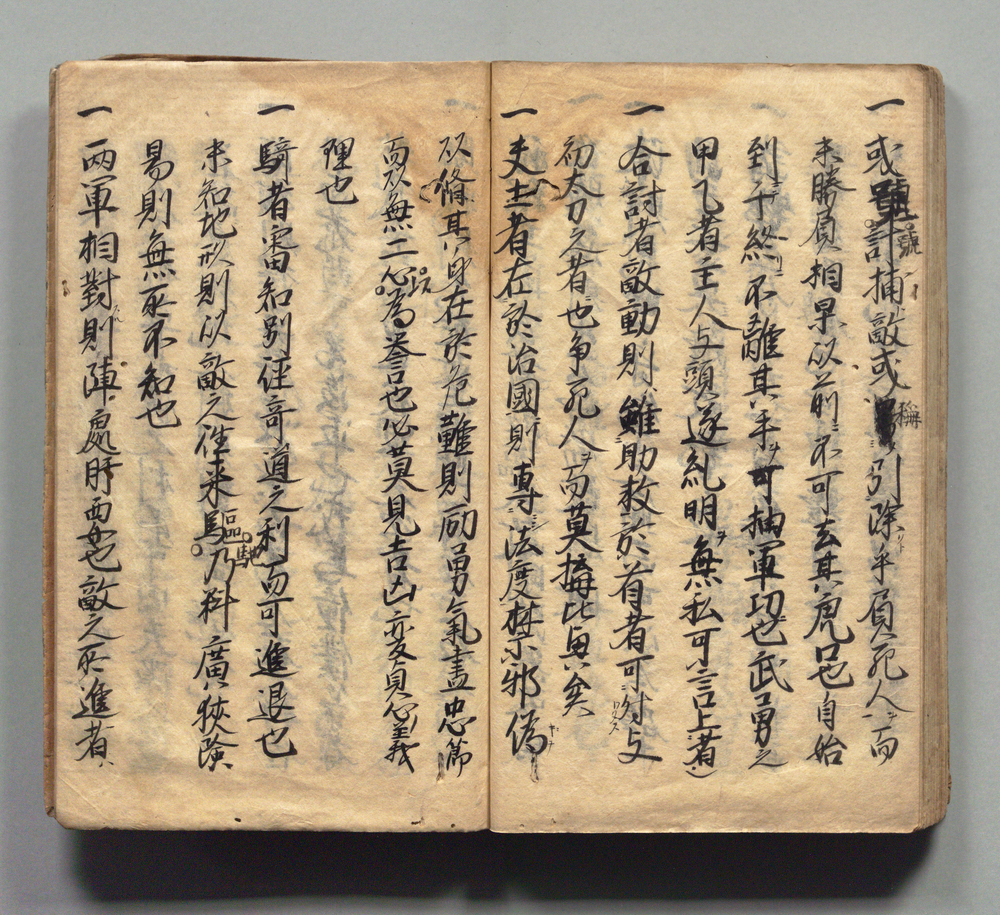 一 或號討捕敵或稱引除手負死人ヲ而
未勝負相早以前ニ不可去其虎口也自始
到于終リ不離其手ヲ可抽軍功也武勇之
甲乙者主人与頭遂糺明ヲ無私可言上者
一 合討者敵動則雖助救於首者可討与
初太刀之者也争死人ヲ而莫搆比興矣
一 夫士者在於治國則專法度禁邪偽
以脩其身在於危難則励勇氣盡忠節
而以無二心為誉也必莫見吉凶変貞心義
理也
一 騎者審知別径奇道之利而可進退也
未知地形則以敵之往来驅馳乃料廣狹険
易則無所不知也
一 両軍相對則陣處肝要也敵之所進者